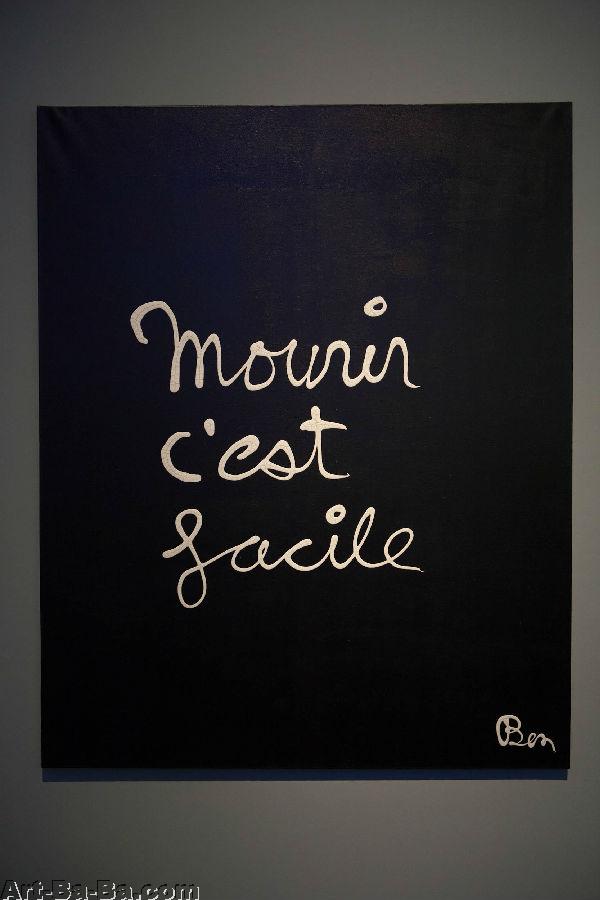 Mourir
c'est
facile
Ben
Art-Ba-Ba.com